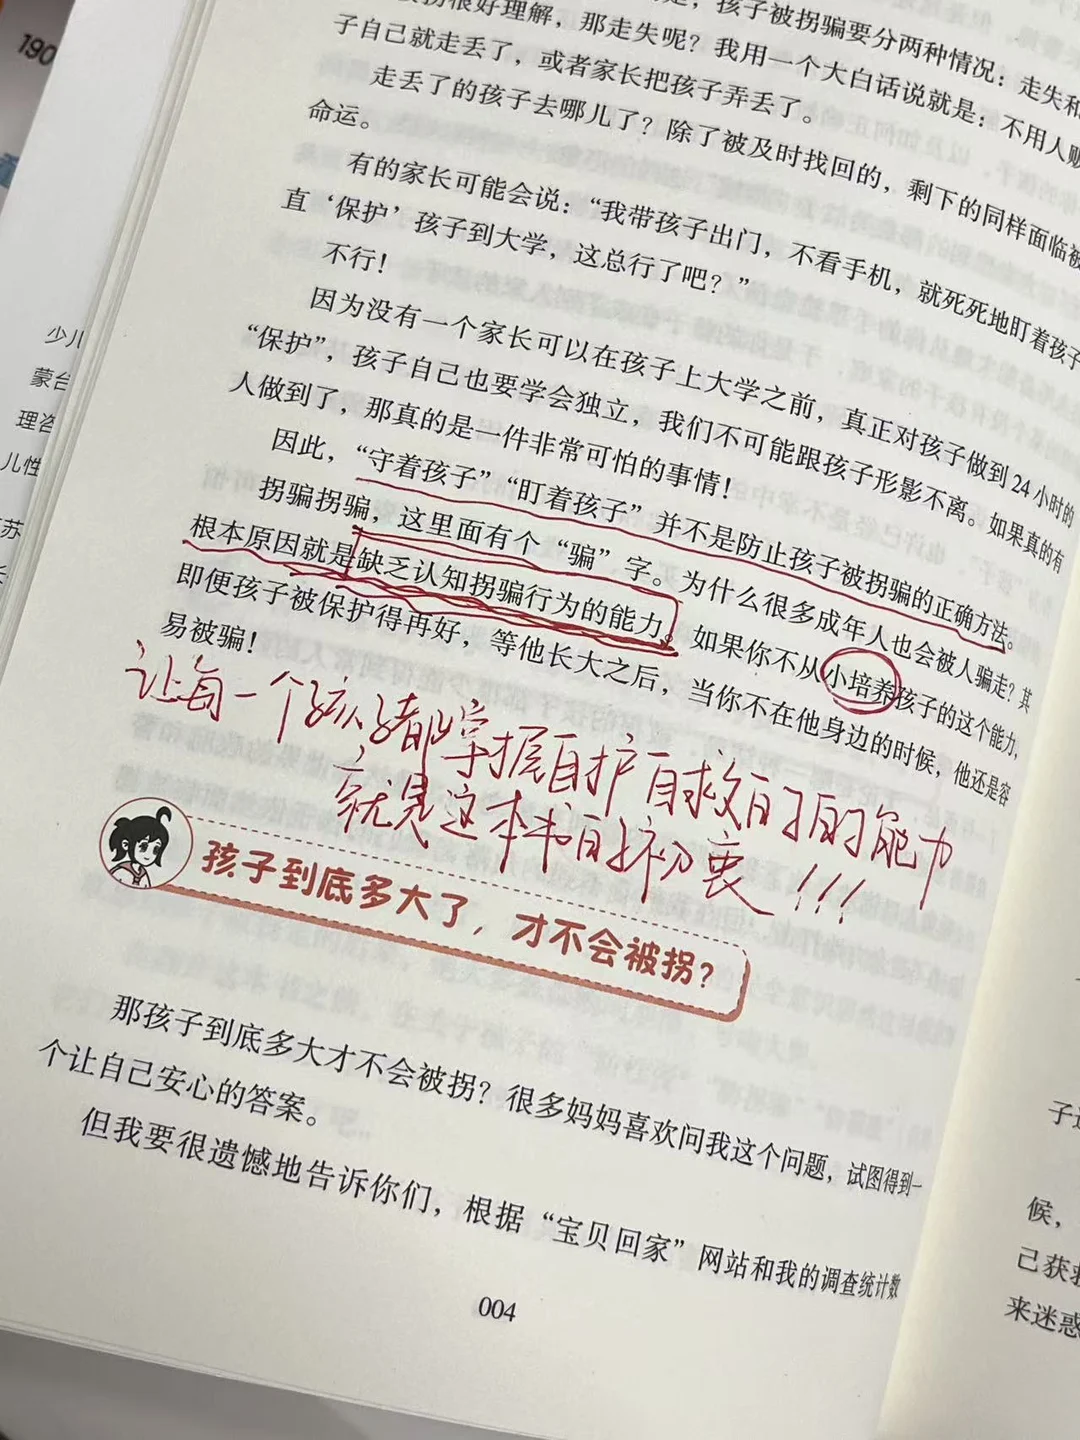 190
孩子被拐骗要分两种情况：走失和
很好理解，那走失呢？我用一个大白话说就是：不用人贩
子自己就走丢了，或者家长把孩子弄丢了。
走丢了的孩子去哪儿了？除了被及时找回的，剩下的同样面临被
命运。
有的家长可能会说：“我带孩子出门，不看手机，就死死地盯着孩子
直‘保护’孩子到大学，这总行了吧？”
不行！
因为没有一个家长可以在孩子上大学之前，真正对孩子做到 24 小时的
“保护”，孩子自己也要学会独立，我们不可能跟孩子形影不离。如果真的有
人做到了，那真的是一件非常可怕的事情！
因此，“守着孩子”“盯着孩子”并不是防止孩子被拐骗的正确方法。
拐骗拐骗，这里面有个“骗”字。为什么很多成年人也会被人骗走？其
根本原因就是缺乏认知拐骗行为的能力。如果你不从小培养孩子的这个能力，
即便孩子被保护得再好，等他长大之后，当你不在他身边的时候，他还是容
易被骗！
让每一个孩子都掌握自护自救的的能力
就是这本书的初衷!!!
孩子到底多大了，才不会被拐？
那孩子到底多大才不会被拐？很多妈妈喜欢问我这个问题，试图得到一
个让自己安心的答案。
但我要很遗憾地告诉你们，根据“宝贝回家”网站和我的调查统计数
004
少儿
蒙台
理咨
儿性
苏
子
候，
己获救
来迷惑